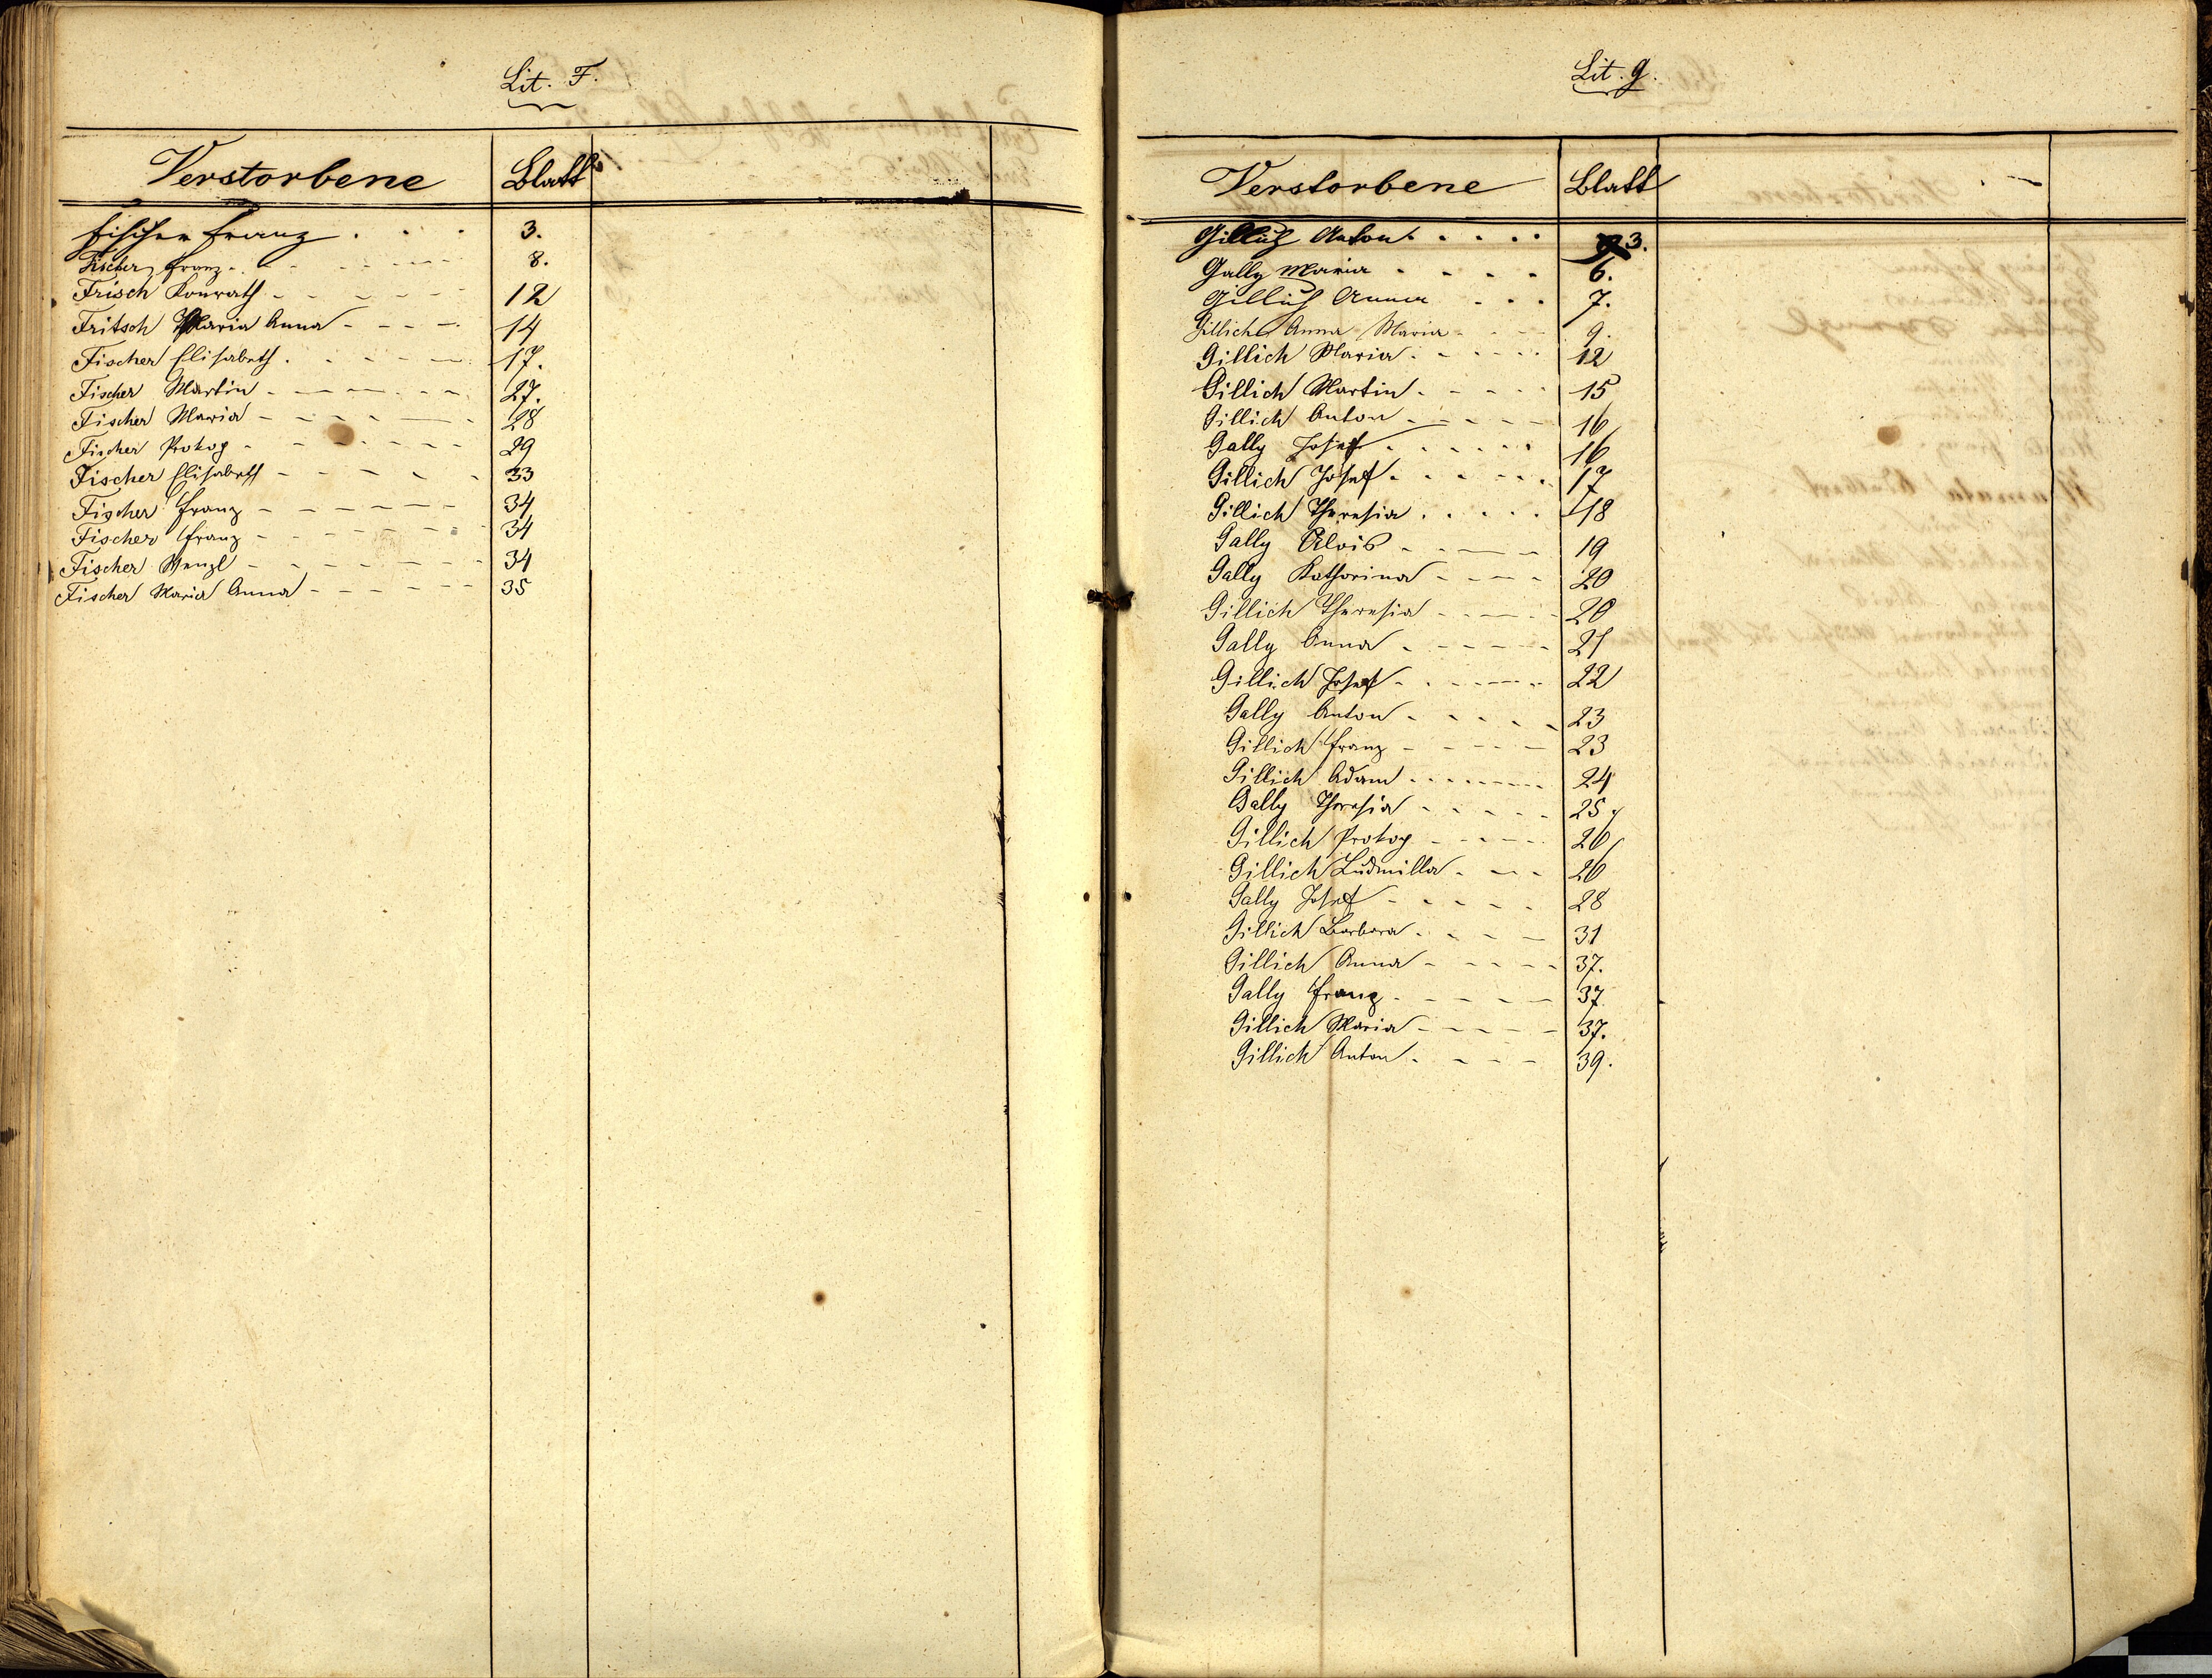 Lit. F.
Verstorbene Blatt
Fischer Franz . . . 3.
Fischer Franz 8.
Frisch Konrath 12
Fritsch Maria Anna 14
Fischer Elisabeth 17.
Fischer Martin 27.
Fischer Maria 28
Fischer Prokop 29
Fischer Elisabeth 33
Fischer Franz 34
Fischer Franz 34
Fischer Wenzl 34
Fischer Maria Anna 35
Lit. G.
Verstorbene Blatt
Gillich Anton 3.
Gally Maria 6.
Gillich Anna 7.
Gillich Anna Maria 9.
Gillich Maria 12
Gillich Martin 15
Gillich Anton 16
Gally Josef 16
Gillich Josef 17
Gillich Theresia 18
Gally Alois 19
Gally Katharina 20
Gillich Theresia 20
Gally Anna 21
Gillich Josef 22
Gally Anton 23
Gillich Franz 23
Gillich Adam 24
Gally Theresia 25
Gillich Prokop 26
Gillich Ludmilla 26
Gally Josef 28
Gillich Barbara 31
Gillich Anna 37.
Gally Franz 37
Gillich Maria 37.
Gillich Anton 39.